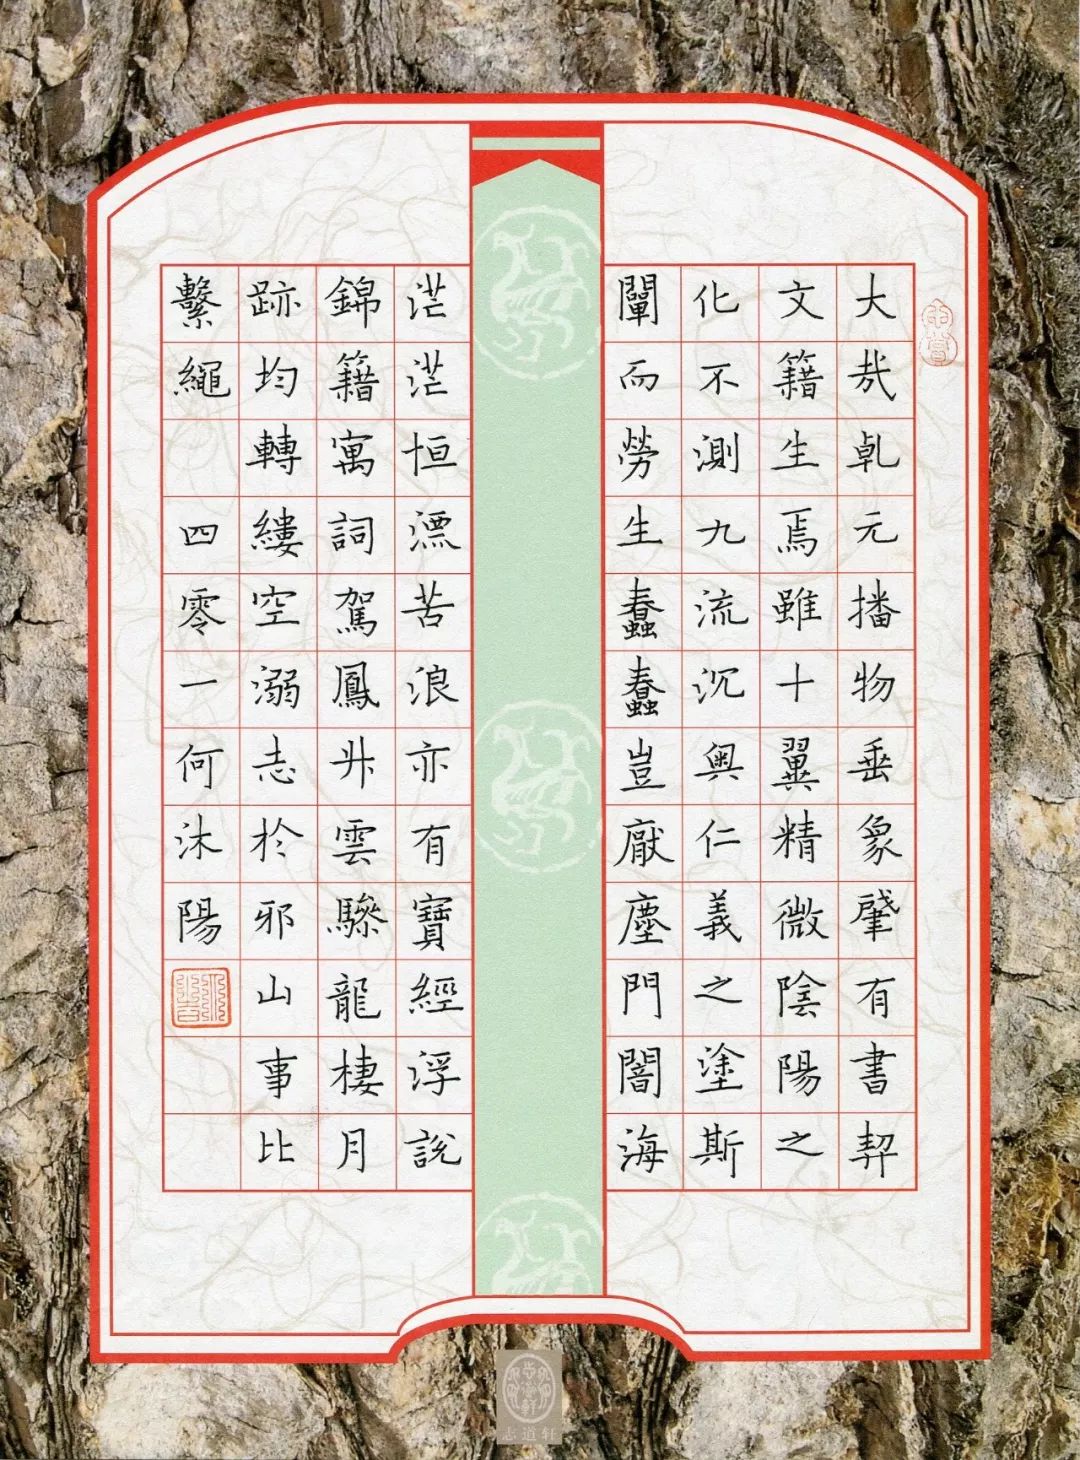 大哉乹元播物垂象肇有書契
文籍生焉雖十翼精微陰陽之
化不測九流沉奥仁義之塗斯
闡而勞生蠢蠢豈厭塵門闇海
茫茫恒漂苦浪亦有寶經浮説
錦籍寓詞駕鳳升雲驂龍棲月
跡均轉縷空溺志於邪山事比
繫繩 四零一何沐陽
志道轩